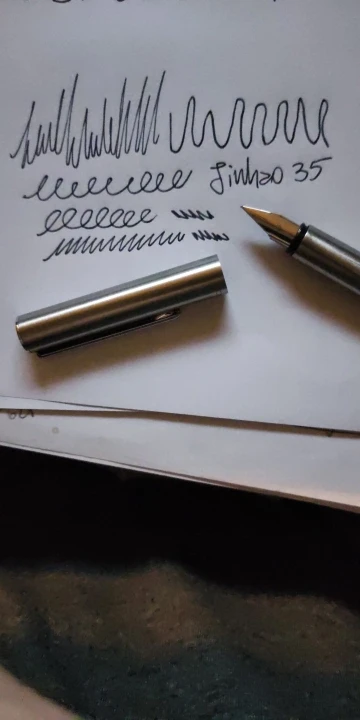 Jinhao 35